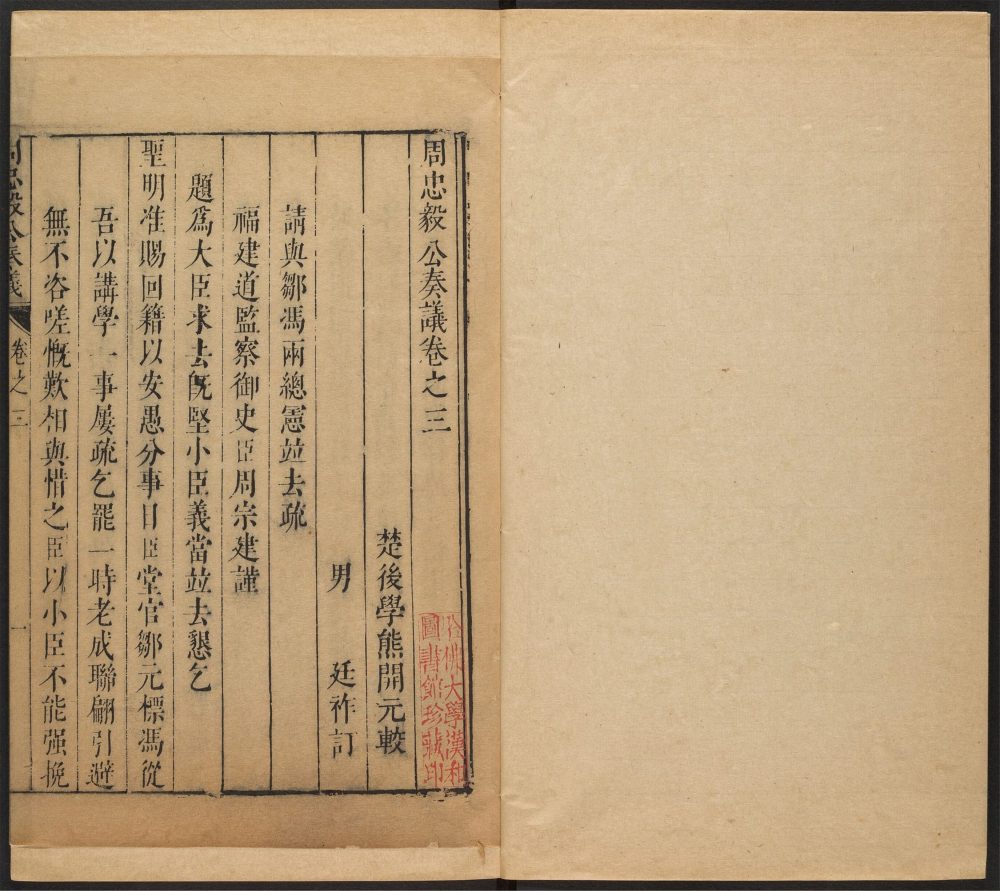 周忠毅公奏議卷之三
楚後學熊開元較
男 廷祚訂
請與鄒馮兩總憲竝去疏
福建道監察御史臣周宗建謹
題爲大臣求去旣堅小臣義當竝去懇乞
聖明准賜回籍以安愚分事日臣堂官鄒元標馮從
吾以講學一事屢疏乞罷一時老成聯翩引避
無不咨嗟慨歎相與惜之臣以小臣不能强挽
周忠毅公奏議 卷之三 一
哈佛大學漢和
圖書館珍藏印